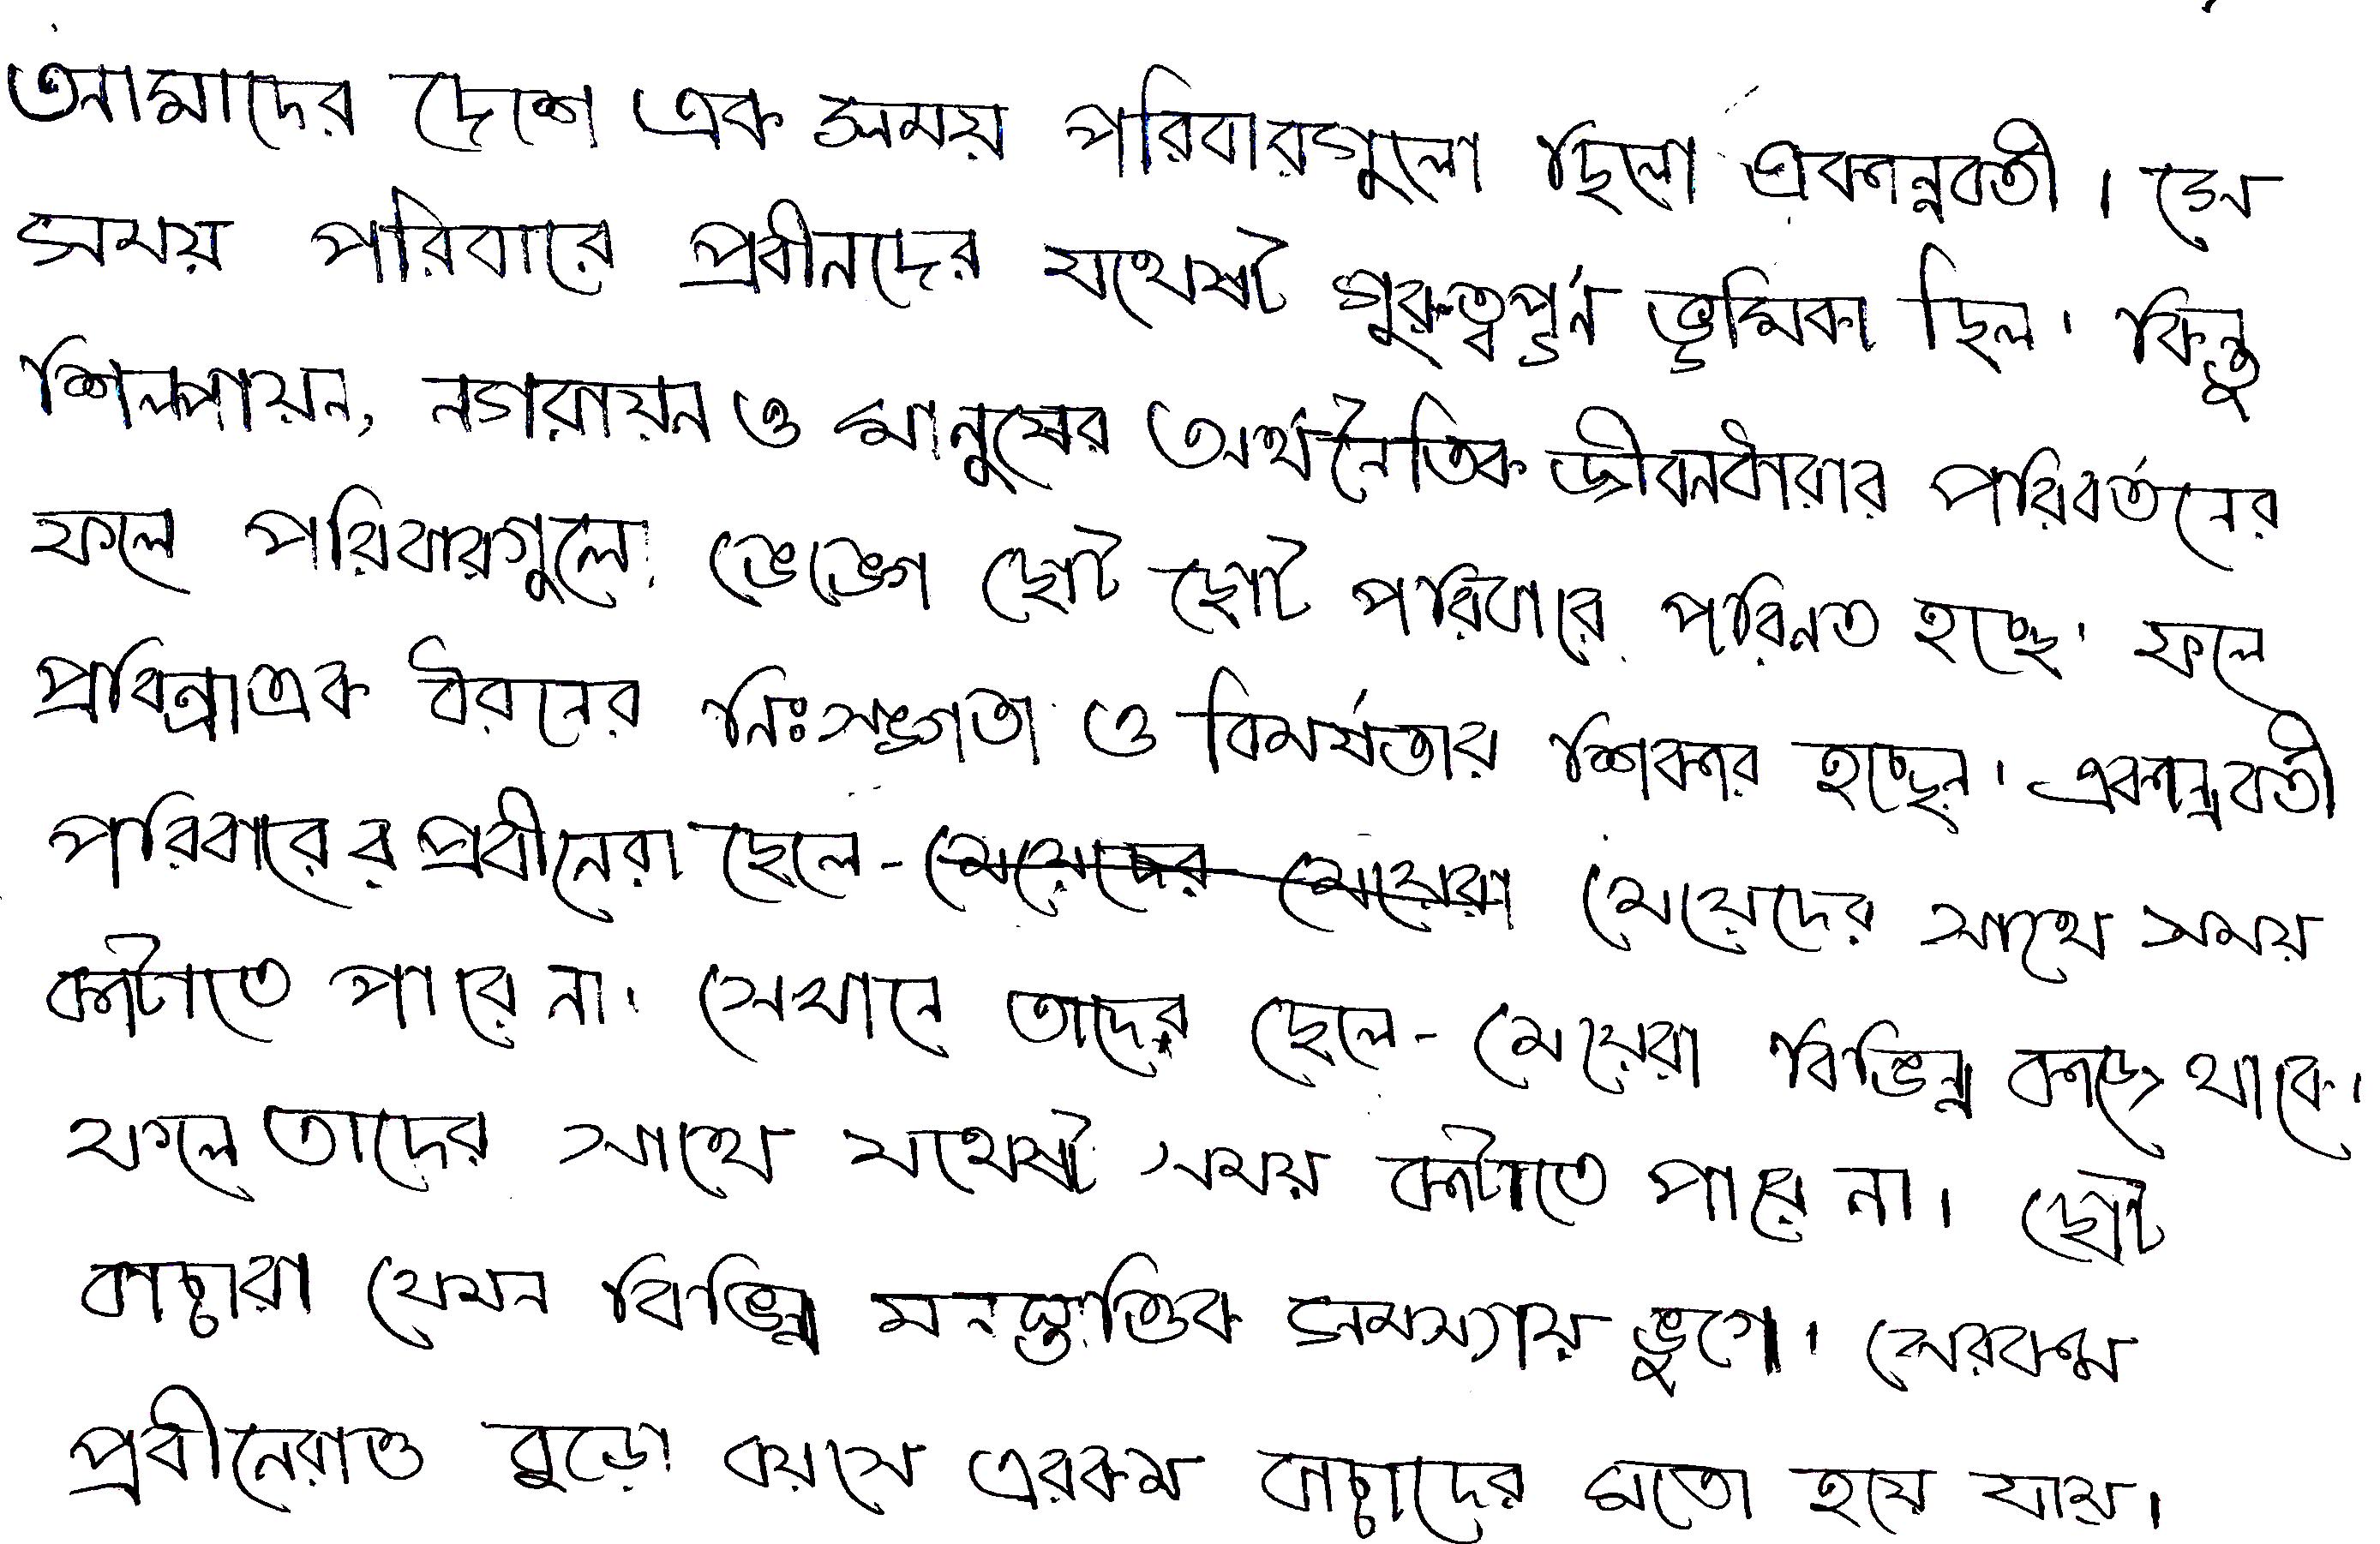 আমাদের দেশে এক সময় পরিবারগুলো ছিলো একান্নবর্তী। সে
সময় পরিবারে প্রবীনদের যথেষ্ট গুরুত্বপূর্ন ভূমিকা ছিল। কিন্তু
শিল্পায়ন, নগরায়ন ও মানুষের অর্থনৈতিক জীবনধারার পরিবর্তনের
ফলে পরিবারগুলো ভেঙেগ ছোট ছোট পরিবারে পরিনত হচ্ছে। ফলে
প্রবিন্রা এক ধরনের নিঃসঙ্গতা ও বিমর্ষতার শিকার হচ্ছেন। একান্নবর্তী
পরিবারের প্রবীনেরা ছেলে- মেয়েদের সাথে সময়
কাটাতে পারে না। সেখানে তাদের ছেলে- মেয়েরা বিভিন্ন কাজে থাকে।
ফলে তাদের সাথে যথেষ্ট সময় কাটাতে পারে না। ছোট
বাচ্চারা যেমন বিভিন্ন মনস্তাত্তিক সমস্যায় ভুগে। সেরকম
প্রবীনেরাও বুড়ো বয়সে এরকম বাচ্চাদের মতো হয়ে যায়।